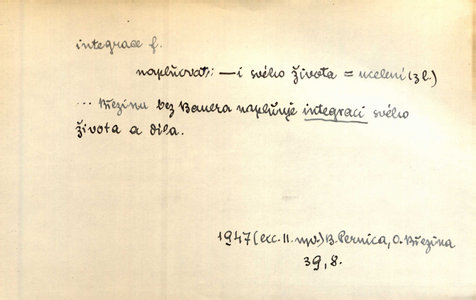 integrace f.
naplňovati —i svého života = ucelení (3 l.)
... Březina bez Bauera naplňuje integraci svého
života a díla.
1947 (exc. II. vyd.) B. Pernica, O. Březina
39, 8.